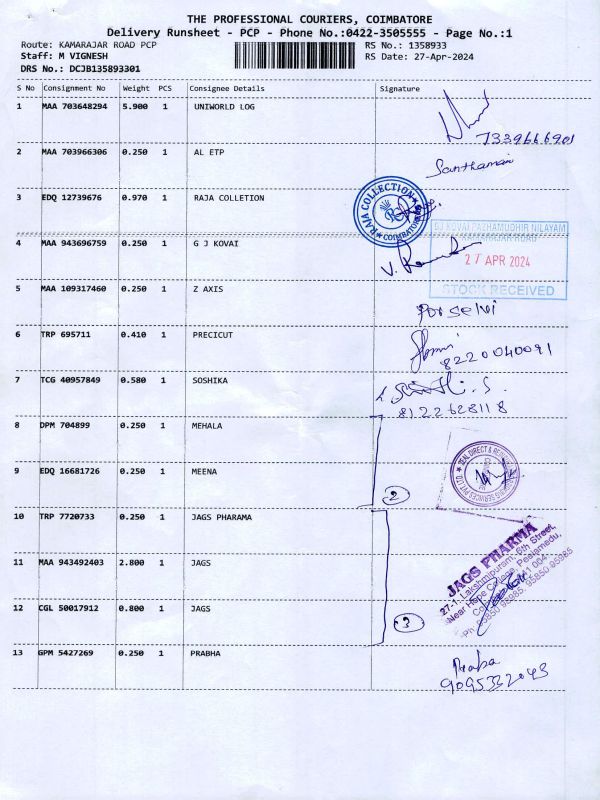 THE PROFESSIONAL COURIERS, COIMBATORE
Delivery Runsheet - PCP - Phone No.:0422-3505555 - Page No.:1
Route: KAMARAJAR ROAD PCP RS No.: 1358933
Staff: M VIGNESH RS Date: 27-Apr-2024
DRS No.: DCJB135893301
S No Consignment No Weight PCS Consignee Details Signature
1 MAA 703648294 5.900 1 UNIWORLD LOG
7339666901
2 MAA 703966306 0.250 1 AL ETP
Santhamani
3 EDQ 12739676 0.970 1 RAJA COLLETION
RAJA COLLECTION
COIMBATORE
4 MAA 943696759 0.250 1 G J KOVAI
KOVAI PAZHAMUDHIR NILAYAM
27 APR 2024
STOCK RECEIVED
5 MAA 109317460 0.250 1 Z AXIS
Porselvi
6 TRP 695711 0.410 1 PRECICUT
8220040091
7 TCG 40957849 0.580 1 SOSHIKA
8122628118
8 DPM 704899 0.250 1 MEHALA
9 EDQ 16681726 0.250 1 MEENA
2
10 TRP 7720733 0.250 1 JAGS PHARAMA
11 MAA 943492403 2.800 1 JAGS
12 CGL 50017912 0.800 1 JAGS
3
JAGS PHARMA
27-1, Lakshmipuram, 6th Street,
Near Hope College, Peelamedu,
641 004.
Ph: 95850 95985, 95850 95965
13 GPM 5427269 0.250 1 PRABHA
Praba
9095332043